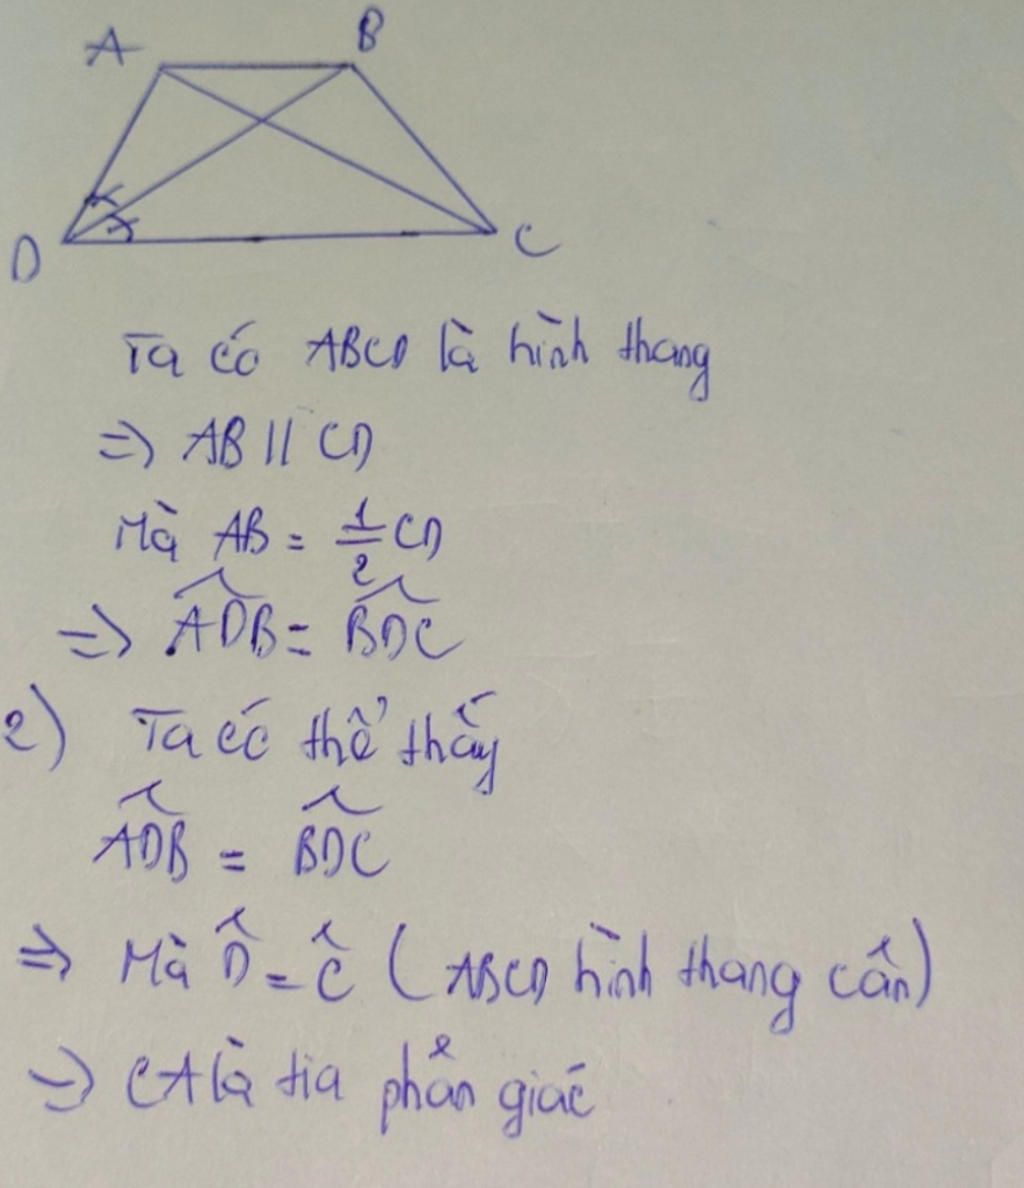 A
B
D
C
Ta có ABCD là hình thang
=> AB // CD
Mà AB = 1/2 CD
=> ADB^ = BDC^
2) Ta có thể thấy
ADB^ = BDC^
=> Mà D^ = C^ ( ABCD hình thang cân)
=> CA là tia phân giác